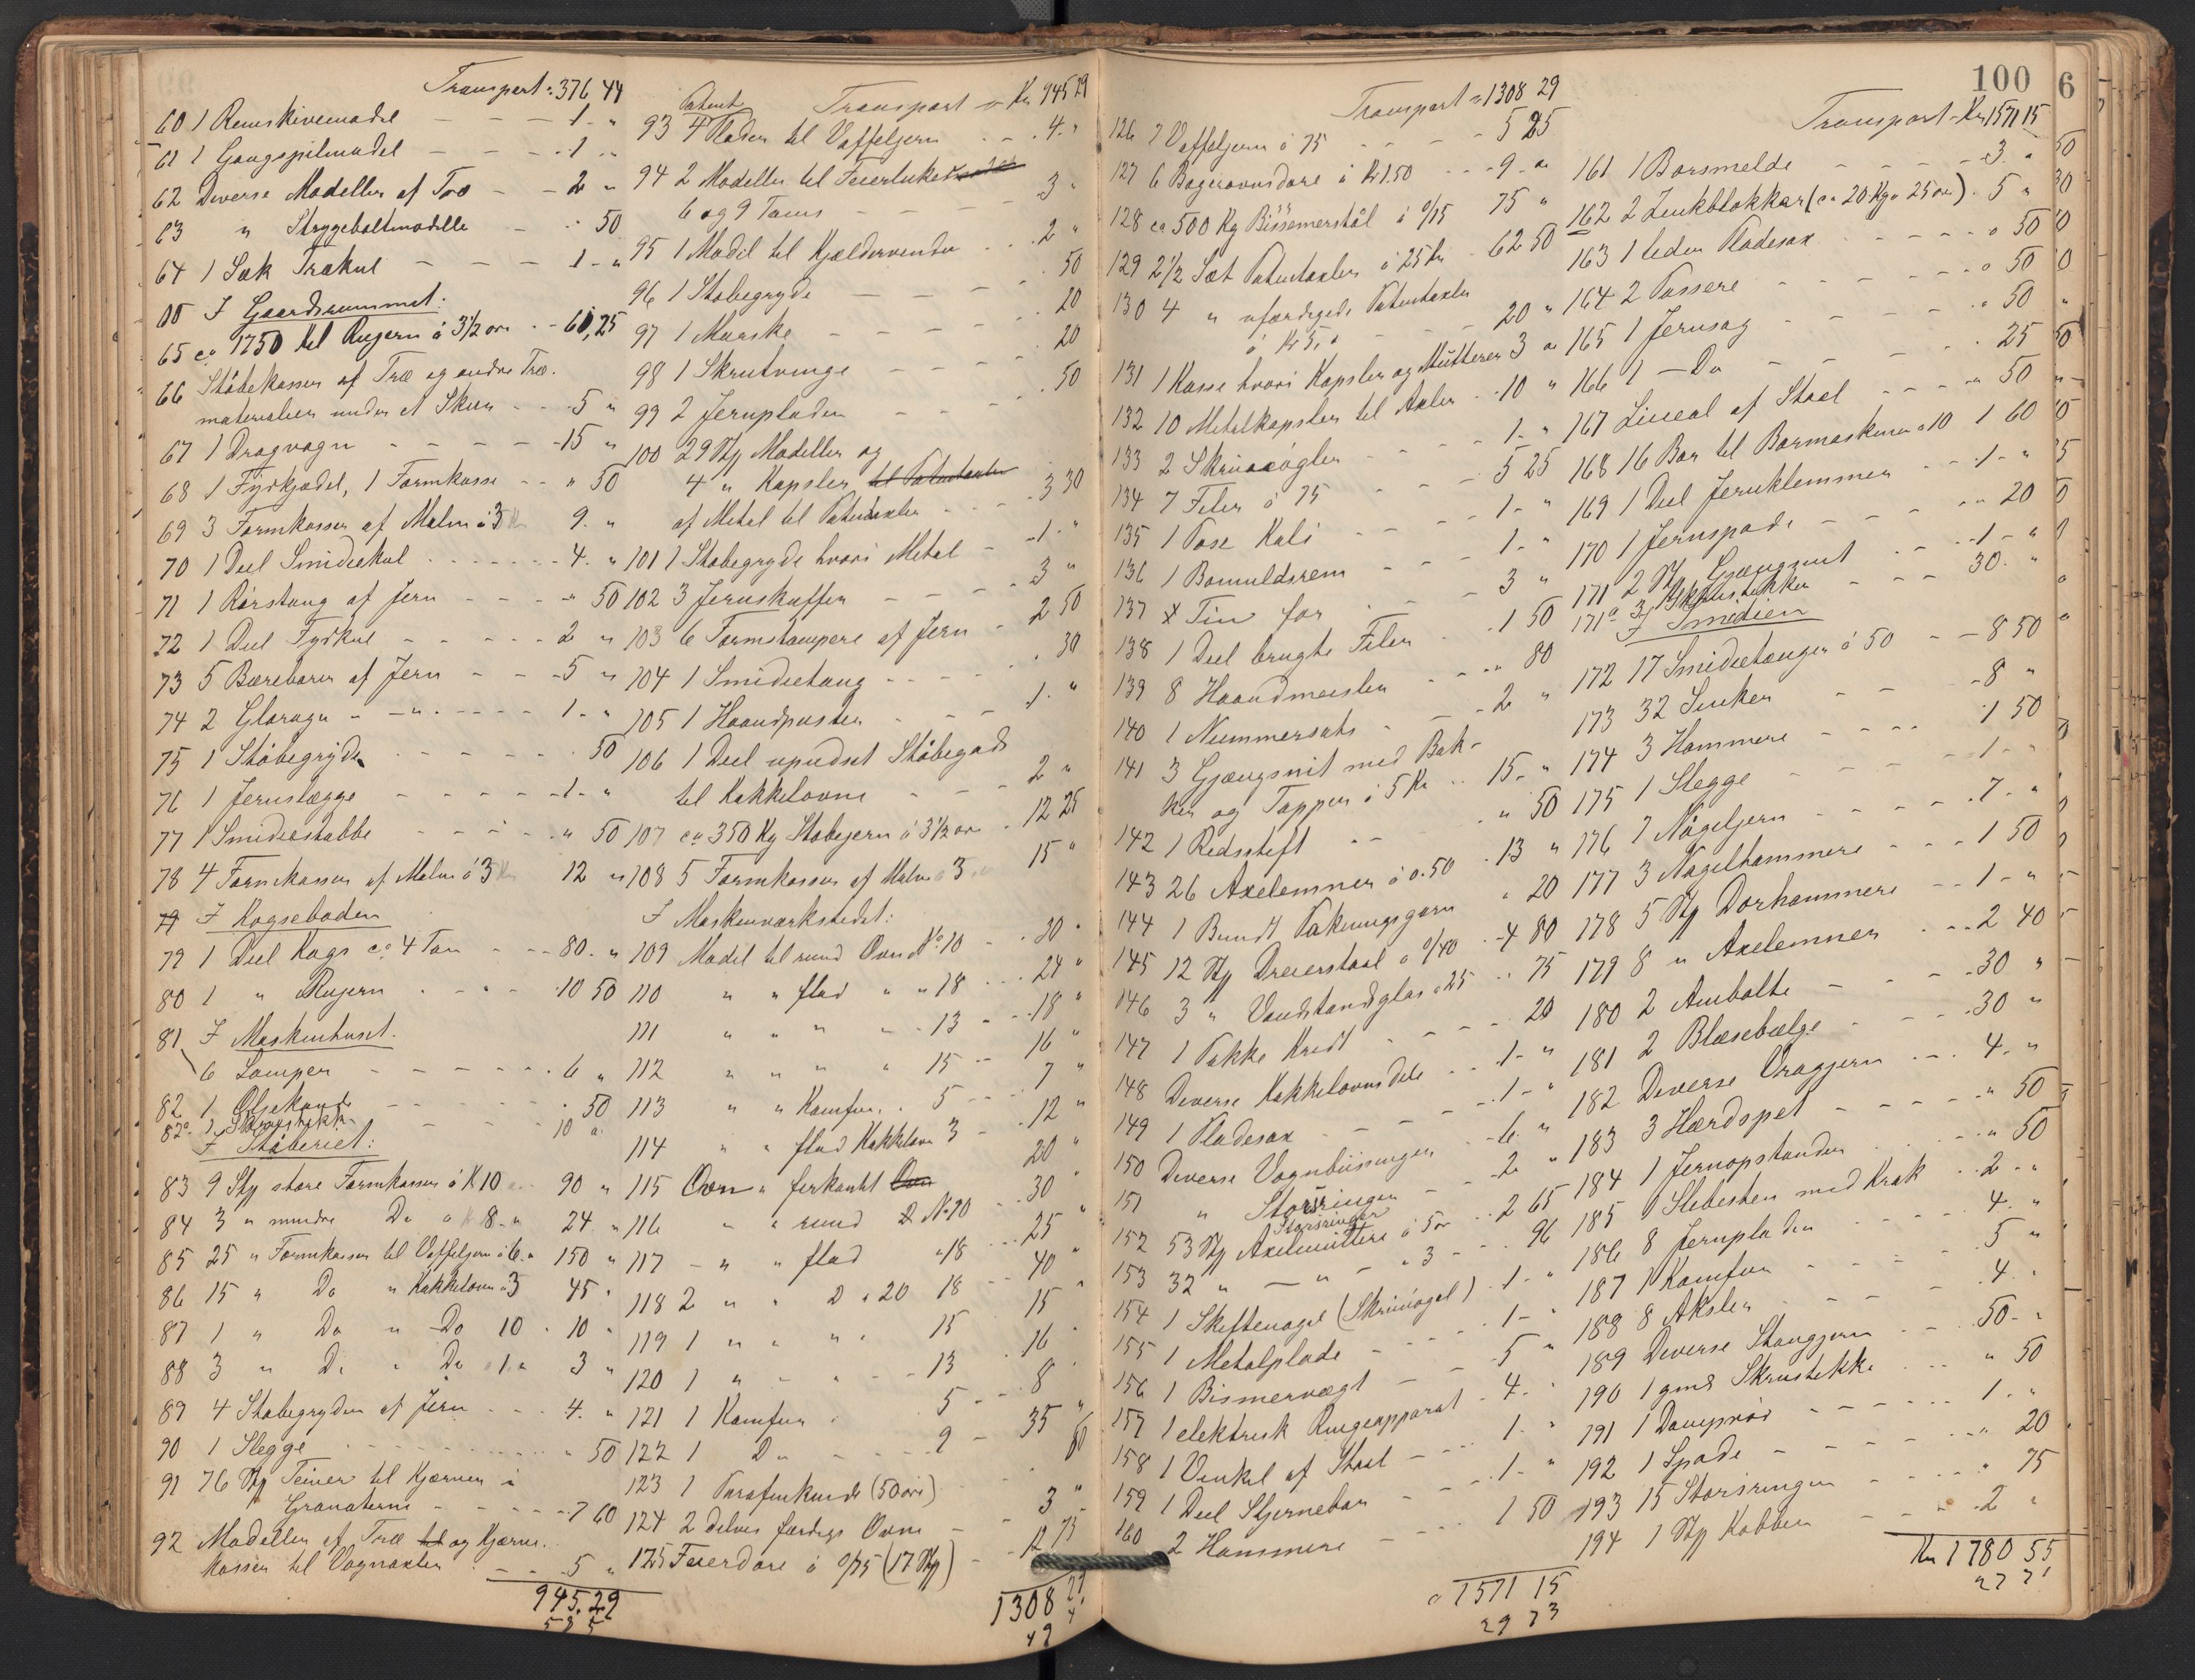 Transport = 376 44
60 1 Remskivemodel - - - 1 - "
61 1 Gangspilmodel - - - 1 - "
62 Diverse Modeller af Træ - - 2 "
63 " Strygeboltmodelle - - " 50
64 1 Sæk Trækul - - - 1 - "
I Gaardsrummet:
65 ca 1750 kil Rujern á 3½ øre - - 61,25
66 Støbekasser af Træ og andre Træ-
materialier under et Skur - - 5 "
67 1 Dragvogn - - - - 15 "
68 1 Fyrkjedel, 1 Formkasse - - " 50
69 3 Formkasser af Malm á 3 Kr 9. "
70 1 Deel Smidiekul - - - - 4. "
71 1 Rørstang af jern - - - - " 50
72 1 Deel Fyrkul - - - - 2 "
73 5 Bærebører af Jern - - - 5 "
74 2 - " - - - - 1. "
75 1 Støbegryde - - - - 50
76 1 Jernslægge - - - - 1. "
77 1 Smidiestabbe - - - - " 50
78 4 Formkasser af Malm á 3 Kr 12 "
I Kogseboden
79 1 Deel Kogs ca 4 Ton - - 80. "
80 1 " Rujern - - - 10 50
81 I Maskinhuset.
6 Lamper - - - - 6 "
82 1 Oljekande - - - - . 50
82a 1 Skruestikke - - - 10 "
I Støberiet:
83 9 Stk store Formkasser á K 10 90 "
84 3 " mindre Do á K 8 " 24. "
85 25 " Formkasser til Vaffeljern á 6. " 150 "
86 15 " Do " Kakkelovn á 3 45 "
87 1 " Do " Do 10 . 10 "
88 3 " Do " Do á 1 " 3 "
89 4 Støbegryder af Jern - - 4. "
90 1 Slegge - - - - " 50
91 76 Stk Teiner til Kjærner i
Granaterne - - - - 7 60
92 Modeller af Træ til og Kjærne-
kasser til Vognaxler - - 5 "
945.29
Transport = Kr 945 29
Patent
93 4 Plader til Vaffeljern - - . 4. "
94 2 Modeller til Feierluker
6 og 9 Toms - - - 3 "
95 1 Model til Kjeldervindu - . . 2 "
96 1 Støbegryde - - - - . 50
97 1 Murske - - - - . 20
98 1 Skrutvinge - - - - . 20
99 2 Jernplader - - - . 50
100 29 Stk Modeller og
4 " Kapsler til Patentaxler
af Metal til Patentaxler - - - 3 30
101 1 Støbegryde hvori Metal - - 1. "
102 3 Jernskuffer - - - - 3 "
103 6 Formstampere af Jern - 2 50
104 1 Smidietang - - - - . 30
105 1 Haandpuster - - - 1. "
106 1 Deel upudset Støbegods
til Kakkelovne - - - 2 "
107 ca 350 Kg Støbejern á 3½ øre . 12 25
108 5 Formkasser af Malm á 3 15 "
I Maskinværkstedet:
109 Model til rund Ovn No 10 - . 30 "
110 " " flad " " 18 . . . 24 "
111 " " " " - 13 - - 18 "
112 " " " " 15 - - 16 "
113 " " Komfur. . 5 - - 7 "
114 " " flad Kakkelovn 3 - . 12 "
115 Ovn " firkantet Ovn 20 "
116 " " rund No 10 - - 30 "
117 - " " flad " 18 . . . 25 "
118 2 " " D " 20 18 - - 40 "
119 1 " " " " 15 15 "
120 1 " - " - - 13 - . 16 "
121 1 Komfur . 5 - - 8 "
122 1 Do - - - - 9 - 35 "
123 1 Parafinkande (50 øre) 50
124 2 delvis færdige Ovne - - 3 "
125 Feierdøre á 0/75 (17 Stk) - - 12 75
1308 29
Transport = 1308 29
126 7 Vaffeljern á 75 - - - - 5 25
127 6 Bagerovnsdøre á Kr 1.50 - - - 9 - "
128 ca 500 Kg Bissemerstål á 0/15 75 "
129 2½ Sæt Patentaxler á 25 Kr . 62 50
130 4 " ufærdigede Patentaxler
á Kr 5, " - - 20 "
131 1 Kasse hvori Kapsler og Mutterer 3 "
132 10 Metalkapsler til Axler . . 10 "
133 2 Skruenøgler - - - 1. "
134 7 Filer á 75 - - - 5 25
135 1 Pose Kali - - - 1. "
136 1 Bomuldsrem - - - 1. "
137 Tin for - - - 3 "
138 1 Deel brugte Filer - . . 1 50
139 8 Haandmeisler - - - " 80
140 1 Nummersats - - - 2 "
141 3 Gjængsnit med Bak-
ker og Tapper á 5 Kr . . 15. "
142 1 Redsstift - - - " 50
143 26 Axelemner á 0.50 . 13 "
144 1 Bundt Pakningsgarn " 20
145 12 Stk Dreierstaal á 0/40 - 4 80
146 3 " Vandstandsglas á 25 . . 75
147 1 Pakke Kridt - - - - 20
148 Diverse Kakkelovnsdele . . 1 - "
149 1 Pladesax - - - - 1 - "
150 Diverse Vognbiisninger - - 6. "
151 " Størringer - - 2 "
152 53 Stk Axelmuttere á 5 ør . . 2 65
Størsringer
153 32 " - " - " 3 - - . 96
154 1 Skiftenøgel (Skruenøgel) . 1 - "
155 1 Metalplade - - - - 1 - "
156 1 Bismervægt - - - 5 "
157 1 elektrisk Ringeapparat - 4. "
158 1 Vinkel af Staal - - - . 1. "
159 1 Deel Stjernebor - - - 1 - "
160 2 Hammere - - - 1 50
1571 15
29 73
100
6
Transport - Kr 1571 15
161 1 Borsmelde - - - - - 3. "
162 2 Zinkblokker (ca 20 Kg á 25 øre) . 5 "
163 1 liden Pladesax - - - - " 50
164 2 Passere - - - - " 50
165 1 Jernsag - - - - " 50
166 1 - Do - - - - . 25
167 Lineal af Staal - - - - " 50
168 16 Bor til Bormaskine á 10 1 60
169 1 Deel Jernklemmer - - . 1 - "
170 1 Jernspade - - - - " 20
171 2 Stk Gjængsnit - . . - 1 - "
171a 3 Skruestikker - - - 30. "
I Smedien
172 17 Smidietænger á 50 - - 8 50
173 32 Sinker - - - 8 "
174 3 Hammere - - - - 1 50
175 1 Slegge - - - - - 1 - "
176 7 Nageljern - - - - . 7. "
177 3 Nagelhammere - - - 1 50
178 5 Stk Dorhammere - - 1 - "
179 8 " Axelemner . . . 2 40
180 2 Ambolte - - - - 30 "
181 2 Blæsebælge - - - - 30 "
182 Diverse Vragjern - - . 4. "
183 3 Herdspet - - - - " 50
184 1 Jernopstander - - - " 50
185 1 Slibesten med Krak . . 2 - "
186 8 Jernplader - - - - 4. "
187 1 Komfur - - - - 5 "
188 8 Aksler - - - - 4. "
189 Diverse Stangjern - - - 50 - "
190 1 gml Skrustikke - - - " 50
191 1 Damprør - - - - 1. "
192 1 Spade - - - - - " 20
193 15 Størsringer - - - - " 75
194 1 Stk Kobber - - - 2 "
Kr 1780 55